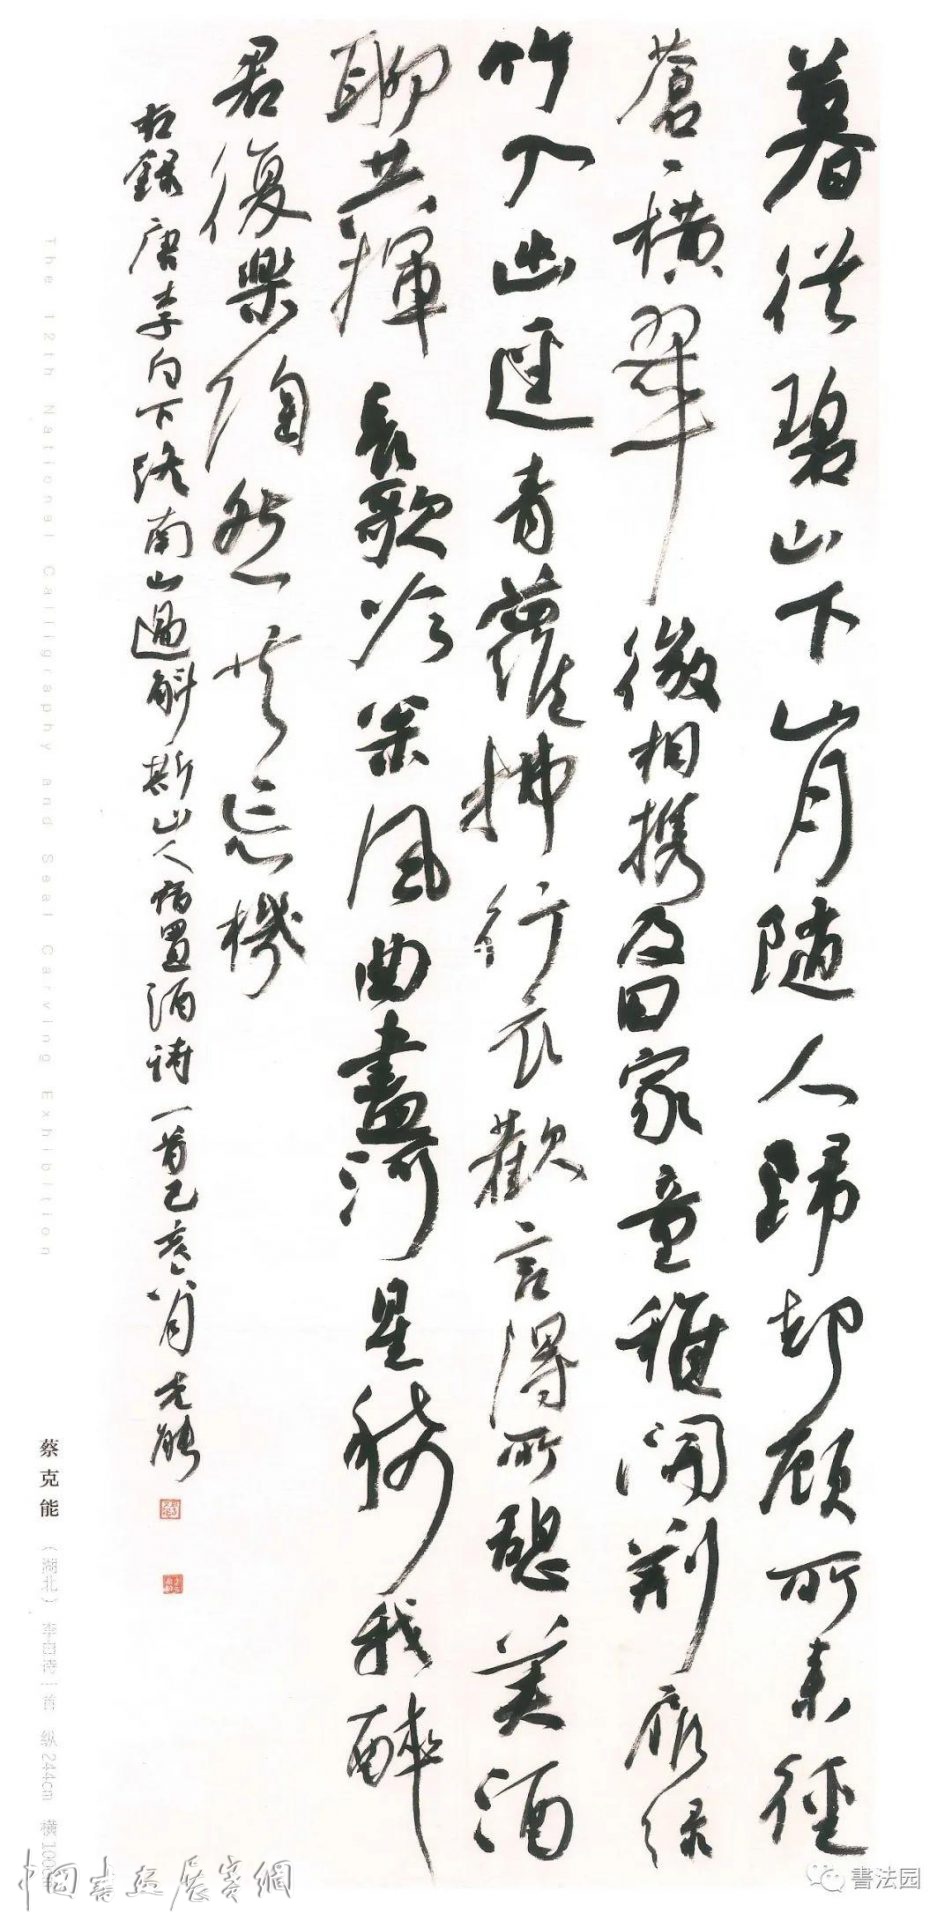 暮從碧山下山月随人歸却顧所来徑
蒼〻横翠微相攜及田家童稚開荆扉緑
竹入幽逕青蘿拂行衣歡言得所憩美酒
聊共揮長歌吟松風曲盡河星稀我醉
君復樂陶然共忘機
右録唐李白下終南山過斛斯山人宿置酒詩一首己亥八月克能
The 12th National Calligraphy and Seal Carving Exhibition
蔡克能 （湖北） 李白诗一首 纵244cm 横100
中國書法展賽網
書法园